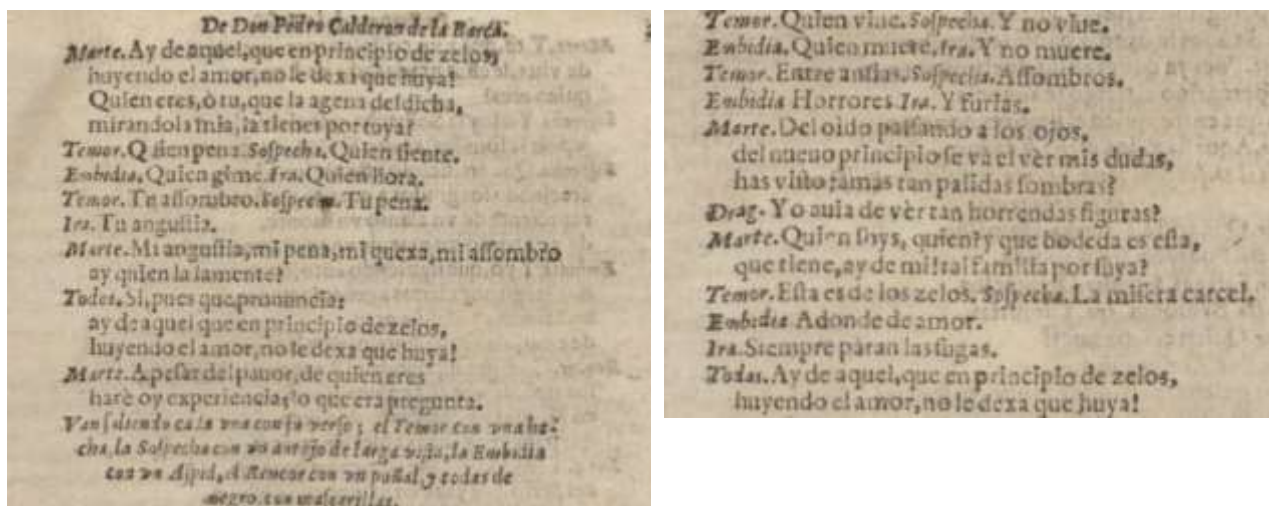 De Don Pedro Calderon de la Barca.
Marte. Ay de aquel, que en principio de zelos,
huyendo el amor, no le dexa que huya!
Quien eres, ò tu, que la agena desdicha,
mirandola mia, la tienes por tuya?
Temor. Quien pena. Sospecha. Quien siente.
Embidia. Quien gime. Ira. Quien llora.
Temor. Tu assombro. Sospecha. Tu pena.
Ira. Tu angustia.
Marte. Mi angustia, mi pena, mi quexa, mi assombro
ay quien la lamente?
Todos. Si, pues que pronuncia:
ay de aquel que en principio de zelos,
huyendo el amor, no le dexa que huya!
Marte. A pesar del pauor, de quien eres
harè oy experiencia, lo que era pregunta.
Van saliendo cada vna con su verso; el Temor con vna ha-
cha, la Sospecha con vn antojo de larga vista, la Embidia
con vn Aspid, el Rencor con vn puñal, y todas de
negro, con mascarillas.
Temor. Quien viue. Sospecha. Y no viue.
Embidia. Quien muere. Ira. Y no muere.
Temor. Entre ansias. Sospecha. Assombros.
Embidia Horrores Ira. Y furias.
Marte. Del oido passando a los ojos.
del nueuo principio se và el vèr mis dudas,
has visto jamas tan palidas sombras?
Drag. Yo auia de vèr tan horrendas figuras?
Marte. Quien soys, quien? y que bodeda es esta,
que tiene, ay de mi! tal familia por suya?
Temor. Esta es de los zelos. Sospecha. La misera carcel.
Embidia Adonde de amor.
Ira. Siempre paran las fugas.
Todas. Ay de aquel, que en principio de zelos,
huyendo el amor, no le dexa que huya!